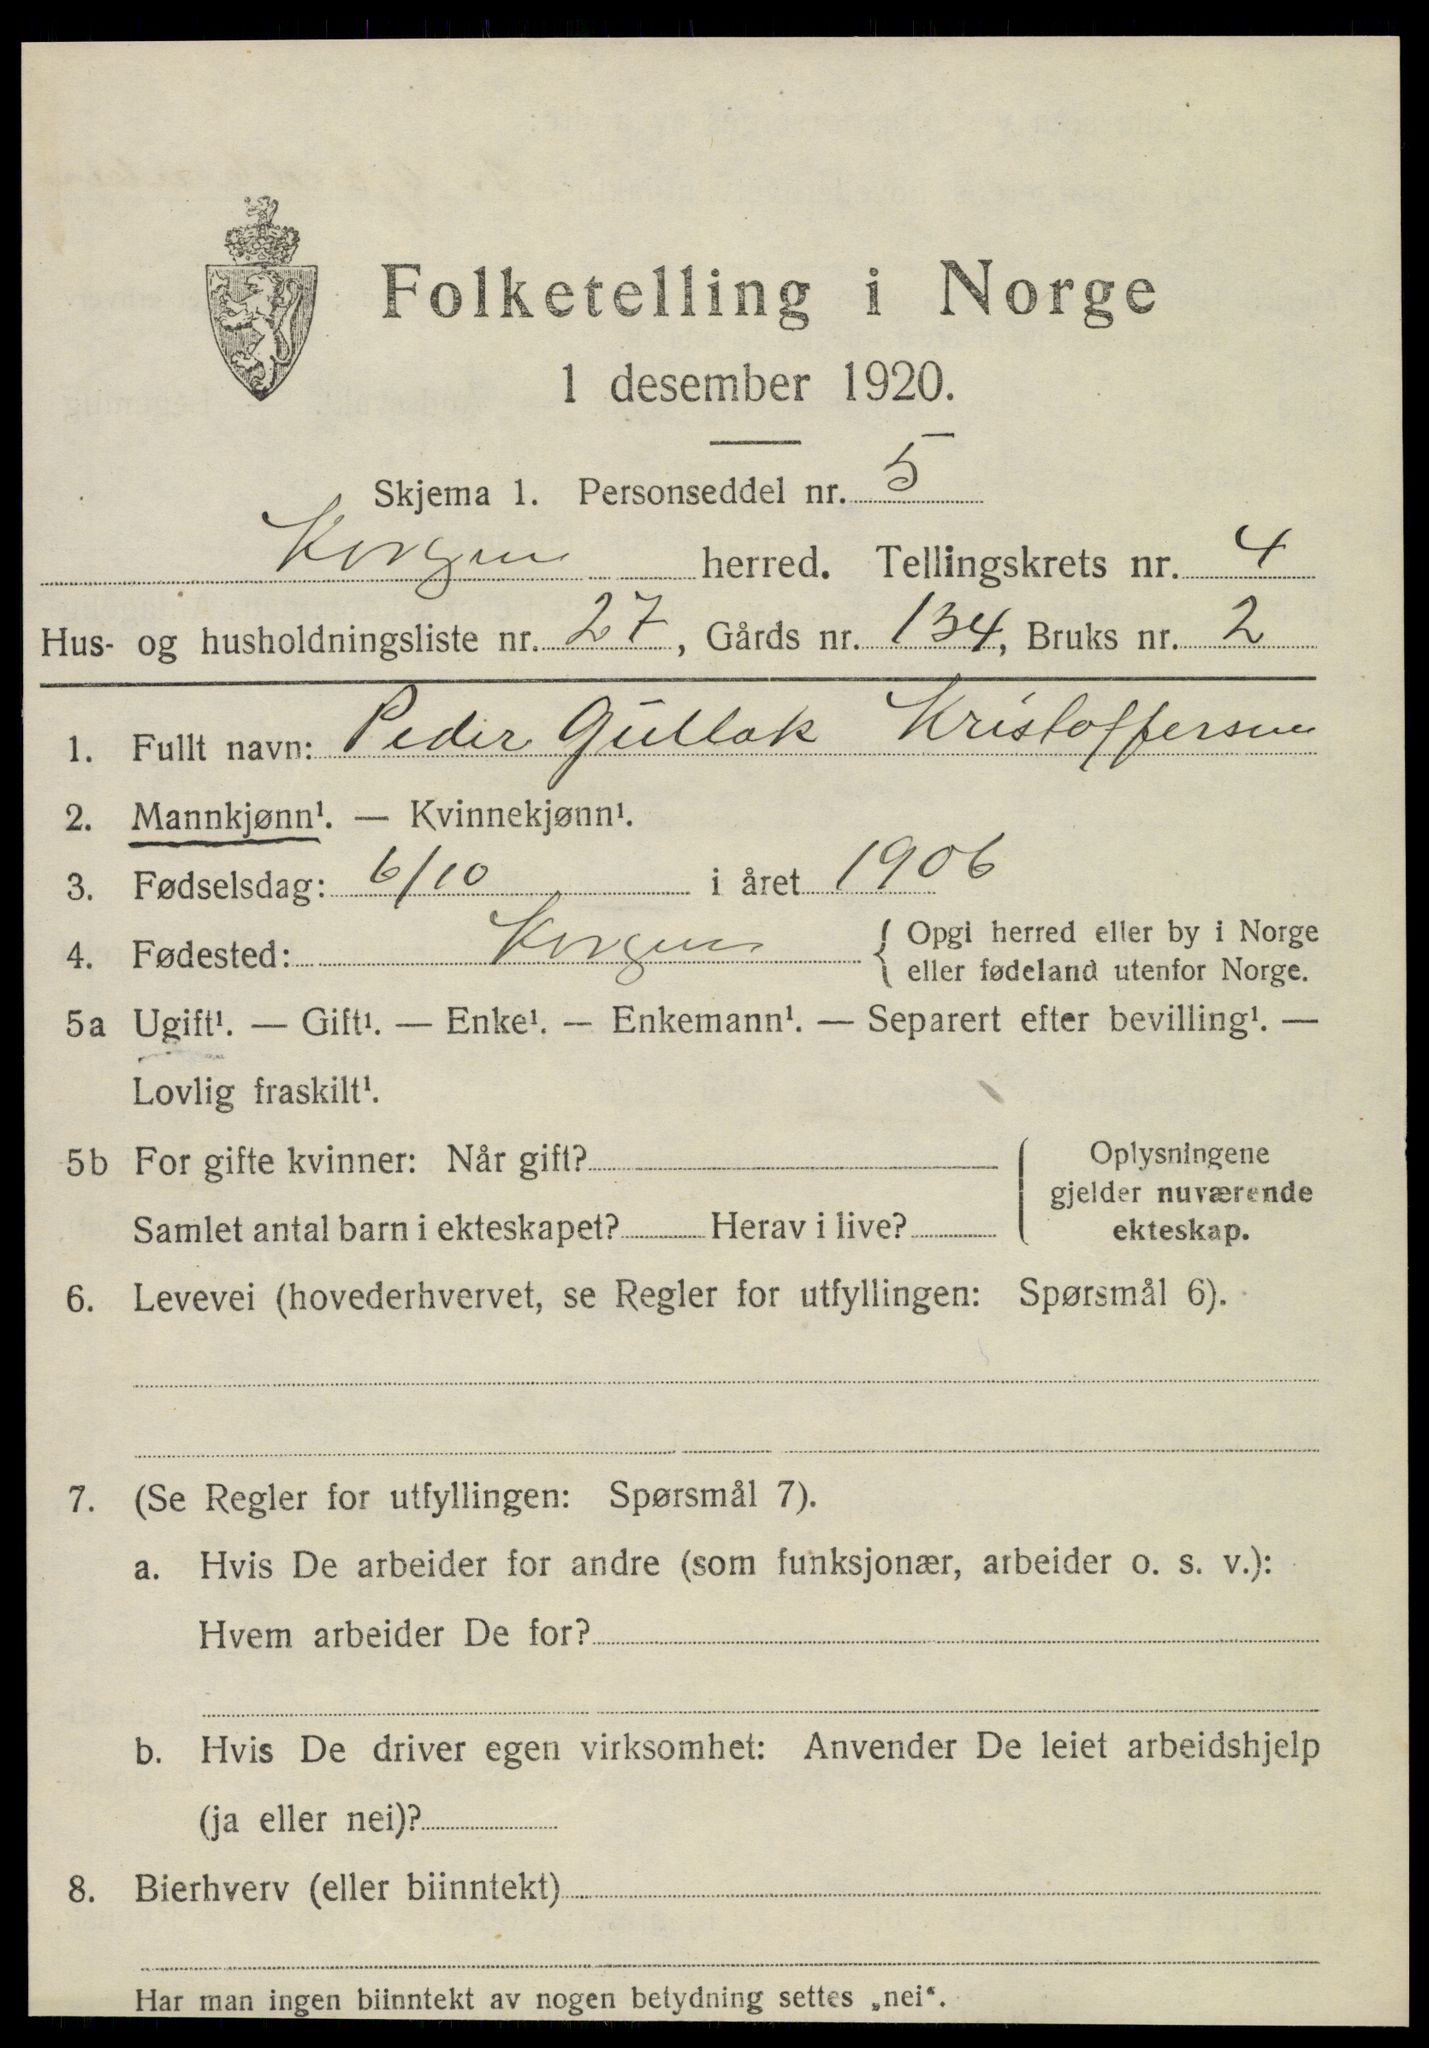 Folketelling i Norge
1 desember 1920.
Skjema 1. Personseddel nr. 5
Korgen herred. Tellingskrets nr. 4
Hus- og husholdningsliste nr. 27, Gårds nr. 134, Bruks nr. 2
1. Fullt navn: Peder Gullak Kristoffersen
2. Mannkjønn¹. — Kvinnekjønn¹.
3. Fødselsdag: 6/10 i året 1906
4. Fødested: Korgen { Opgi herred eller by i Norge
eller fødeland utenfor Norge.
5a Ugift¹. — Gift¹. — Enke¹. — Enkemann¹. — Separert efter bevilling¹. —
Lovlig fraskilt¹.
5b For gifte kvinner: Når gift?
Samlet antal barn i ekteskapet? Herav i live?
Oplysningene
gjelder nuværende
ekteskap.
6. Levevei (hovederhvervet, se Regler for utfyllingen: Spørsmål 6).
7. (Se Regler for utfyllingen: Spørsmål 7).
a. Hvis De arbeider for andre (som funksjonær, arbeider o. s. v.):
Hvem arbeider De for?
b. Hvis De driver egen virksomhet: Anvender De leiet arbeidshjelp
(ja eller nei)?
8. Bierhverv (eller biinntekt)
Har man ingen biinntekt av nogen betydning settes „nei“.